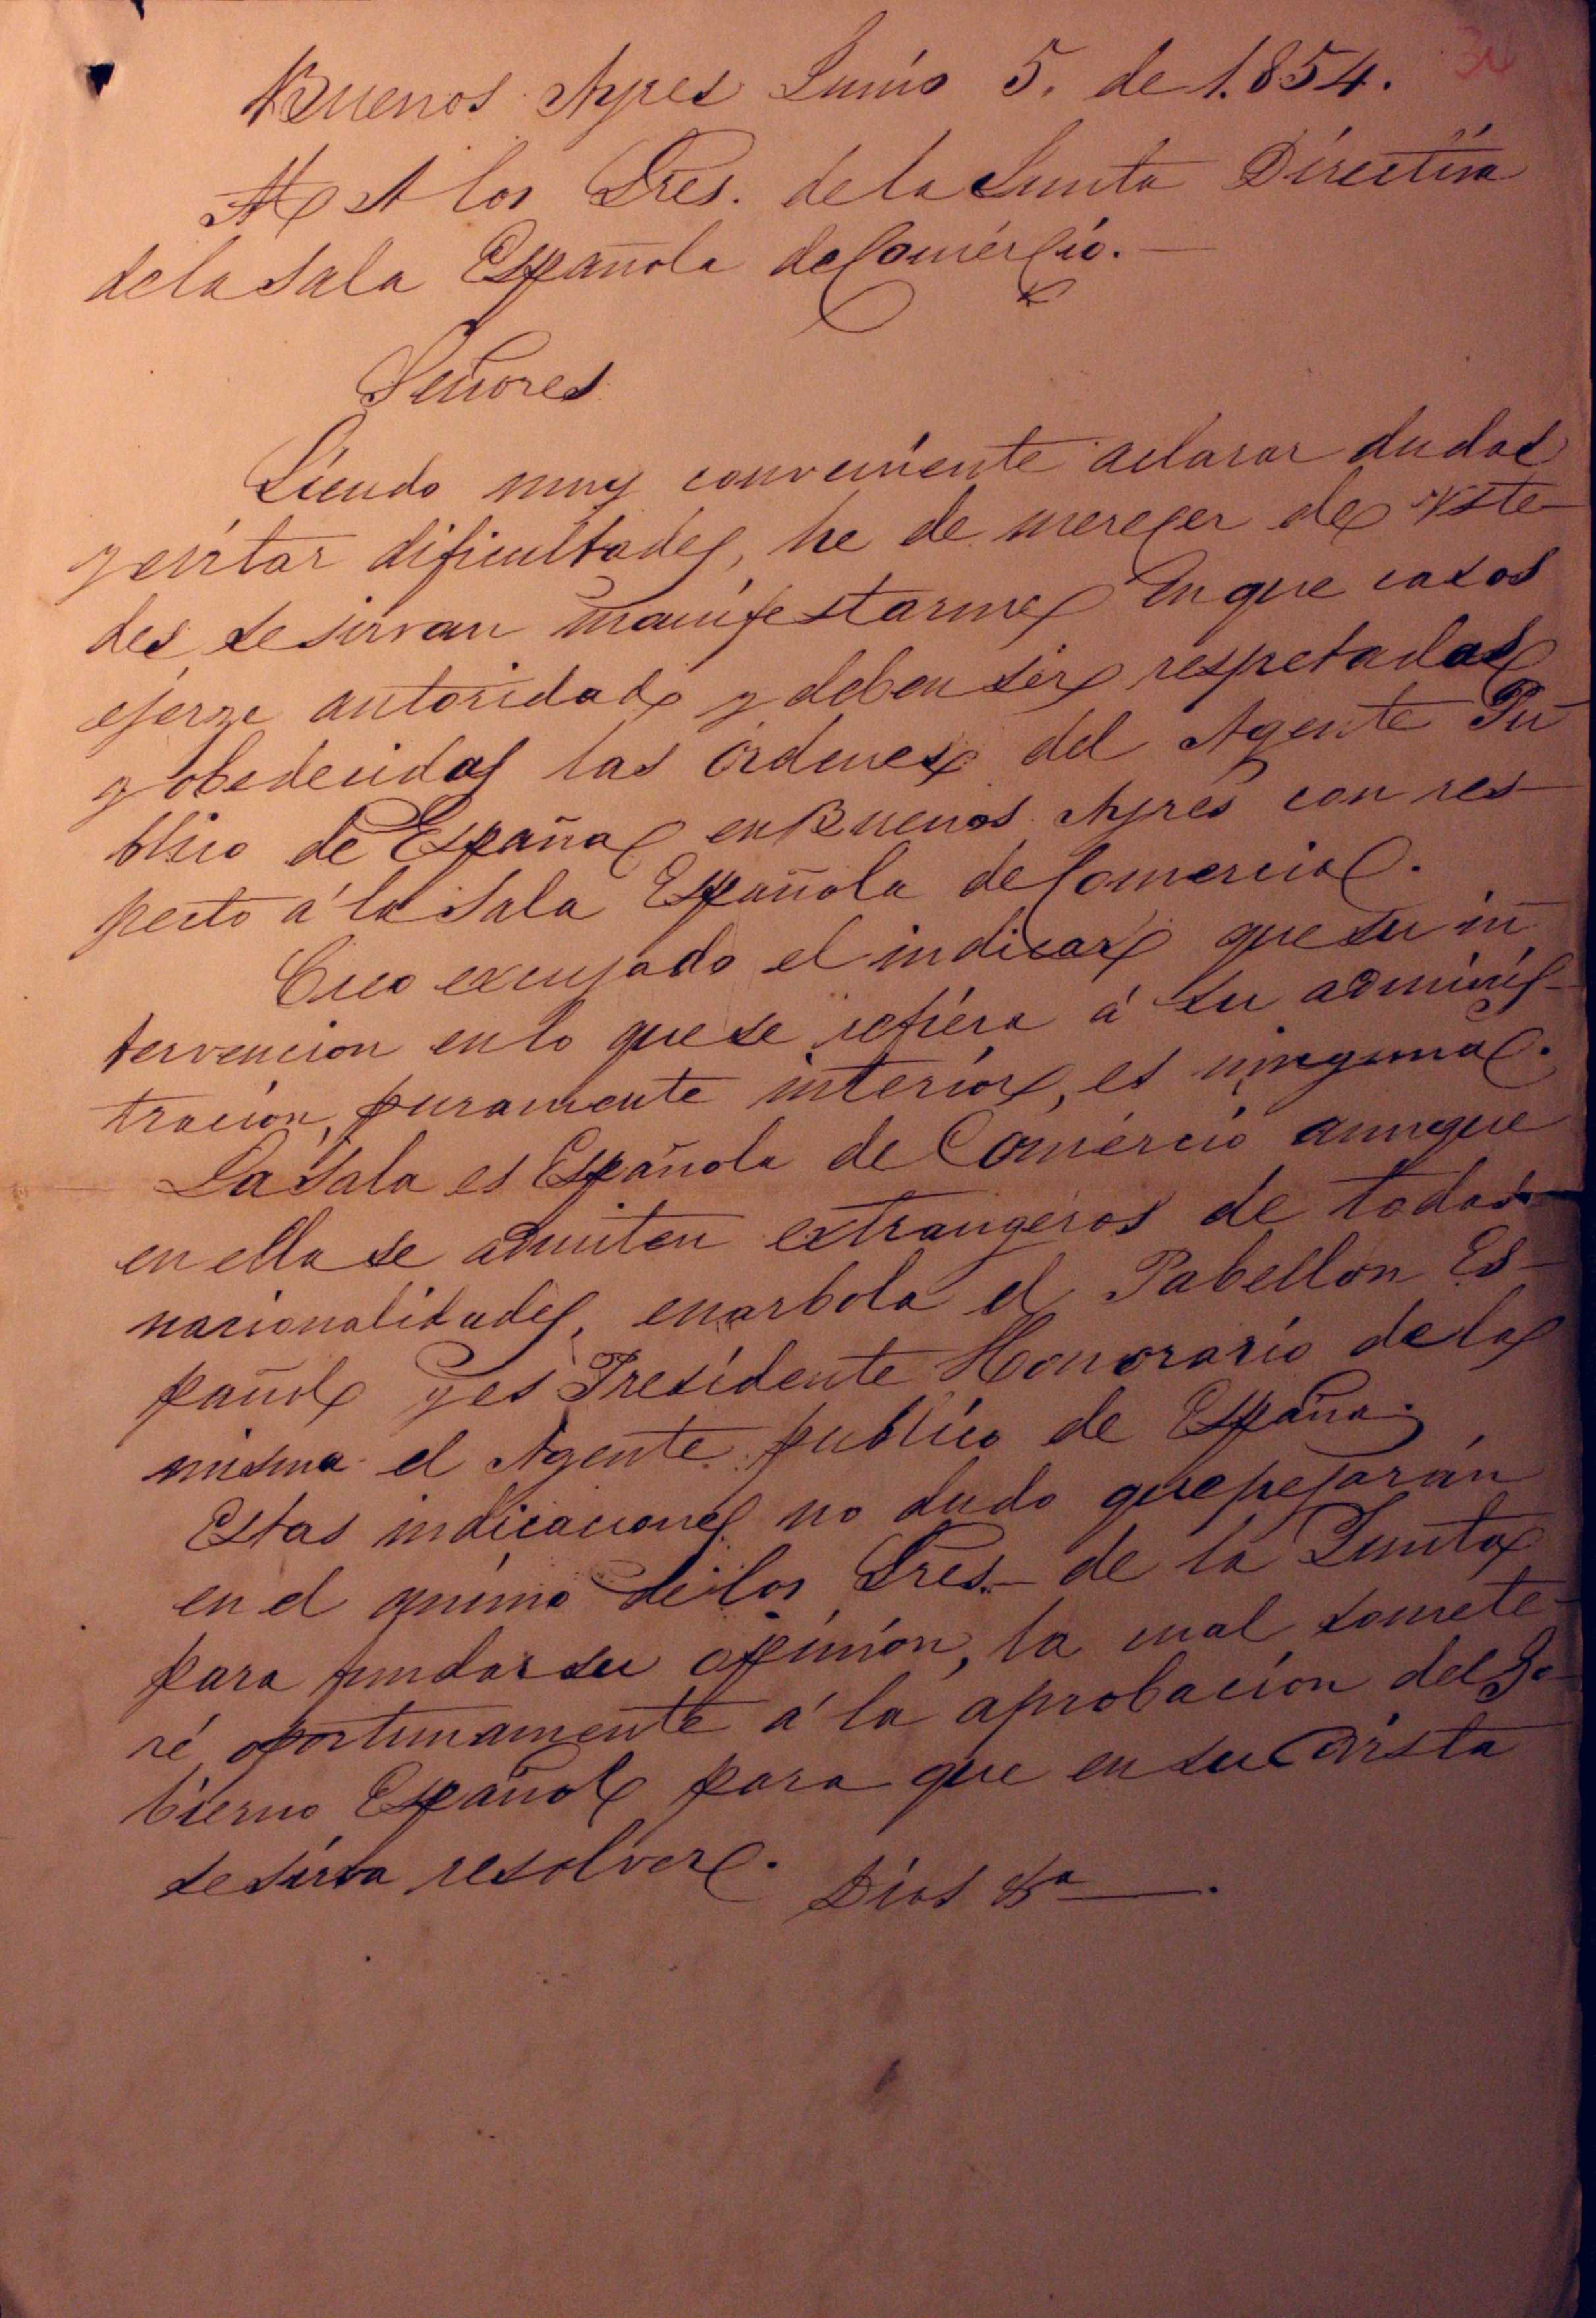 34
Buenos Ayres Junio 5. de 1.854.
A los Sres. de la Junta Directiva
de la Sala Española de Comercio.—
Señores
Siendo muy conveniente aclarar dudas
y evitar dificultades, he de merecer de Uste-
des se sirvan manifestarme en que casos
ejerze autoridad y deben ser respetadas
y obedecidas las órdenes del Agente Pú-
blico de España en Buenos Ayres con res-
pecto á la Sala Española de Comercio.
Creo excusado el indicar que su in-
tervencion en lo que se refiera á su adminis-
tracion, puramente interior, es ninguna.
La Sala es Española de Comercio aunque
en ella se admiten extrangeros de todas
nacionalidades, enarbola el Pabellon Es-
pañol y es Presidente Honorario de la
misma el Agente publico de España.
Estas indicaciones no dudo que pesarán
en el ánimo de los Sres. de la Junta
para fundar su opinión, la cual somete-
ré oportunamente á la aprobacion del Go-
bierno Español para que en su vista
se sirva resolver.
Dios &a —.